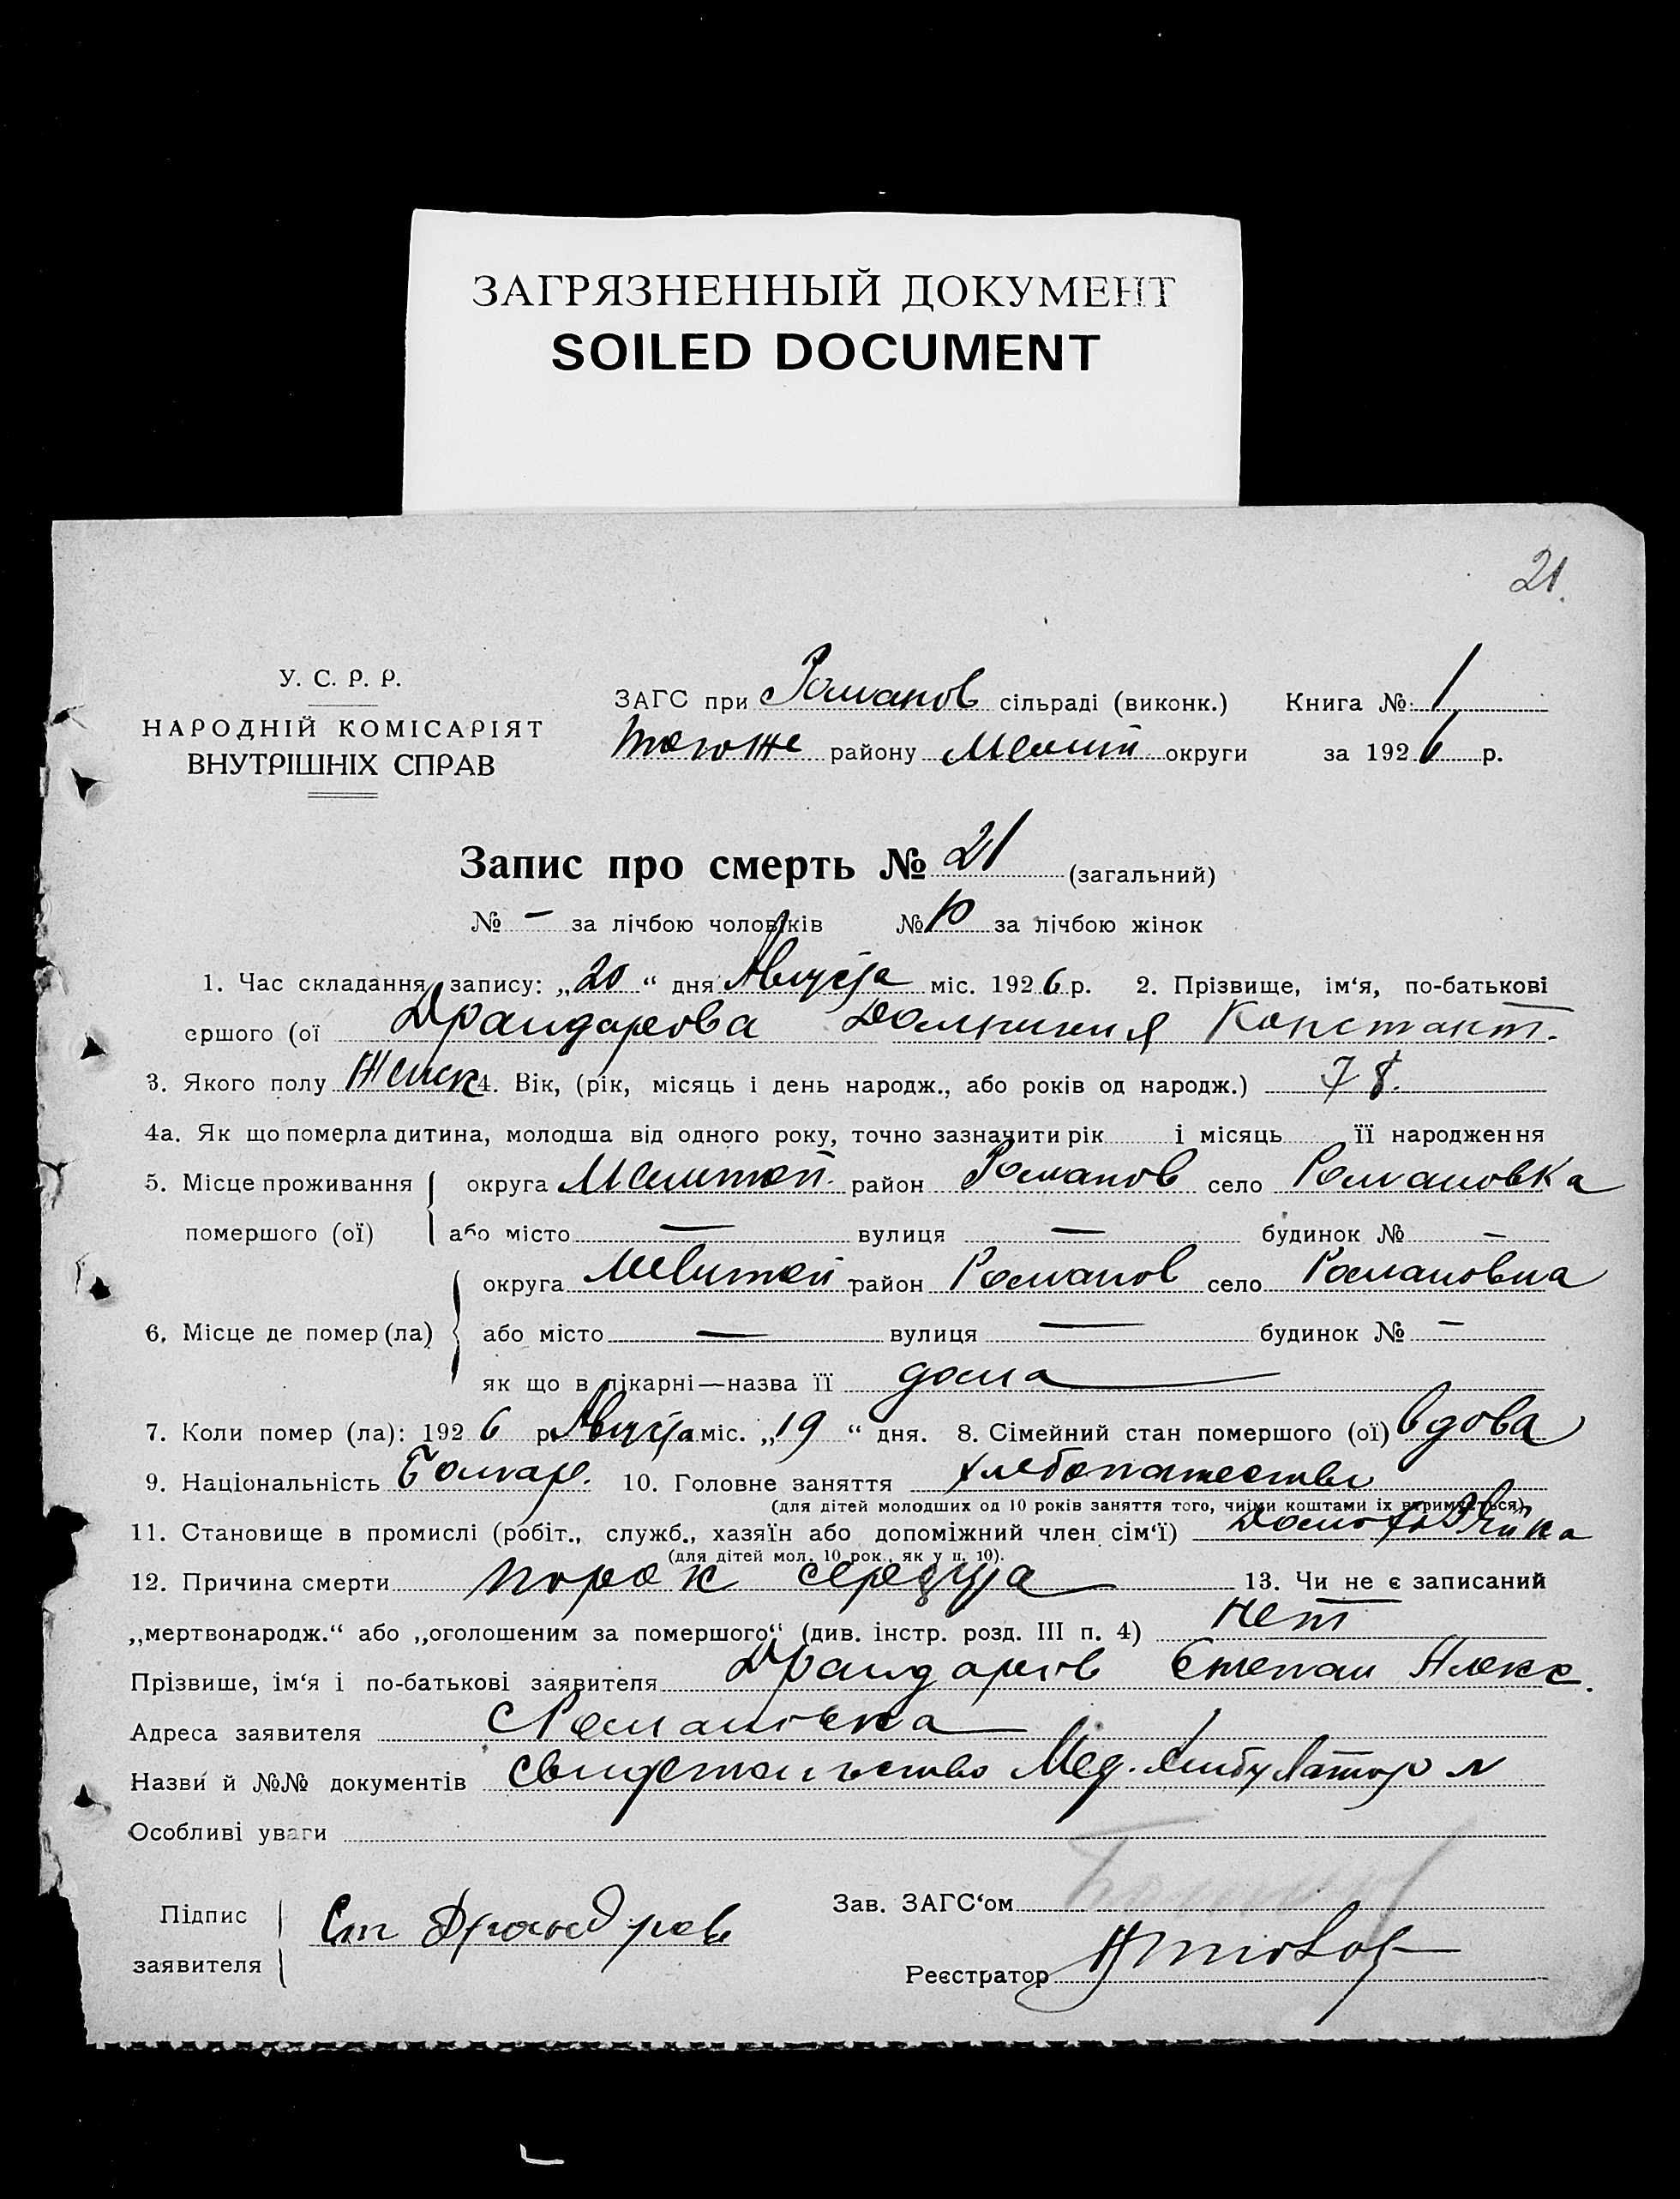 ЗАГРЯЗНЕННЫЙ ДОКУМЕНТ
SOILED DOCUMENT
21.
У. С. Р. Р.
НАРОДНІЙ КОМІСАРІЯТ
ВНУТРІШНІХ СПРАВ
ЗАГС при Романов сільраді (виконк.) Книга № 1
того же району Мелит округи за 1926 р.
Запис про смерть № 21 (загальний)
№ — за лічбою чоловіків № 10 за лічбою жінок
1. Час складання запису: „20“ дня Августа міс. 1926 р. 2. Прізвище, ім‘я, по-батькові
ершого (ої Драндарова Домникия Констант.
3. Якого полу Женск 4. Вік, (рік, місяць і день народж., або років од народж.) 78.
4а. Як що померла дитина, молодша від одного року, точно зазначити рік і місяць її народження
5. Місце проживання округа Мелитоп. район Романов село Романовка
помершого (ої) або місто — вулиця — будинок № —
округа Мелитоп район Романов село Романовка
6. Місце де помер (ла) або місто — вулиця — будинок № —
як що в лікарні—назва її дома
7. Коли помер (ла): 1926 р. Августа міс. „19“ дня. 8. Сімейний стан помершого (ої) вдова
9. Національність Болгар. 10. Головне заняття хлебопашество
(для дітей молодших од 10 років заняття того, чиїми коштами їх втримується)
11. Становище в промислі (робіт., служб., хазяїн або допоміжний член сім‘ї) Домохозяйка
(для дітей мол. 10 рок., як у п. 10).
12. Причина смерти порок сердца 13. Чи не є записаний
„мертвонародж.“ або „оголошеним за помершого“ (див. інстр. розд. III п. 4) нет
Прізвише, ім‘я і по-батькові заявителя Драндаров Степан Алекс.
Адреса заявителя с Романовка
Назви й №№ документів свидетельство Мед. Амбулатор №
Особливі уваги
Підпис
заявителя
Ст Драндров
Зав. ЗАГС‘ом
Реєстратор